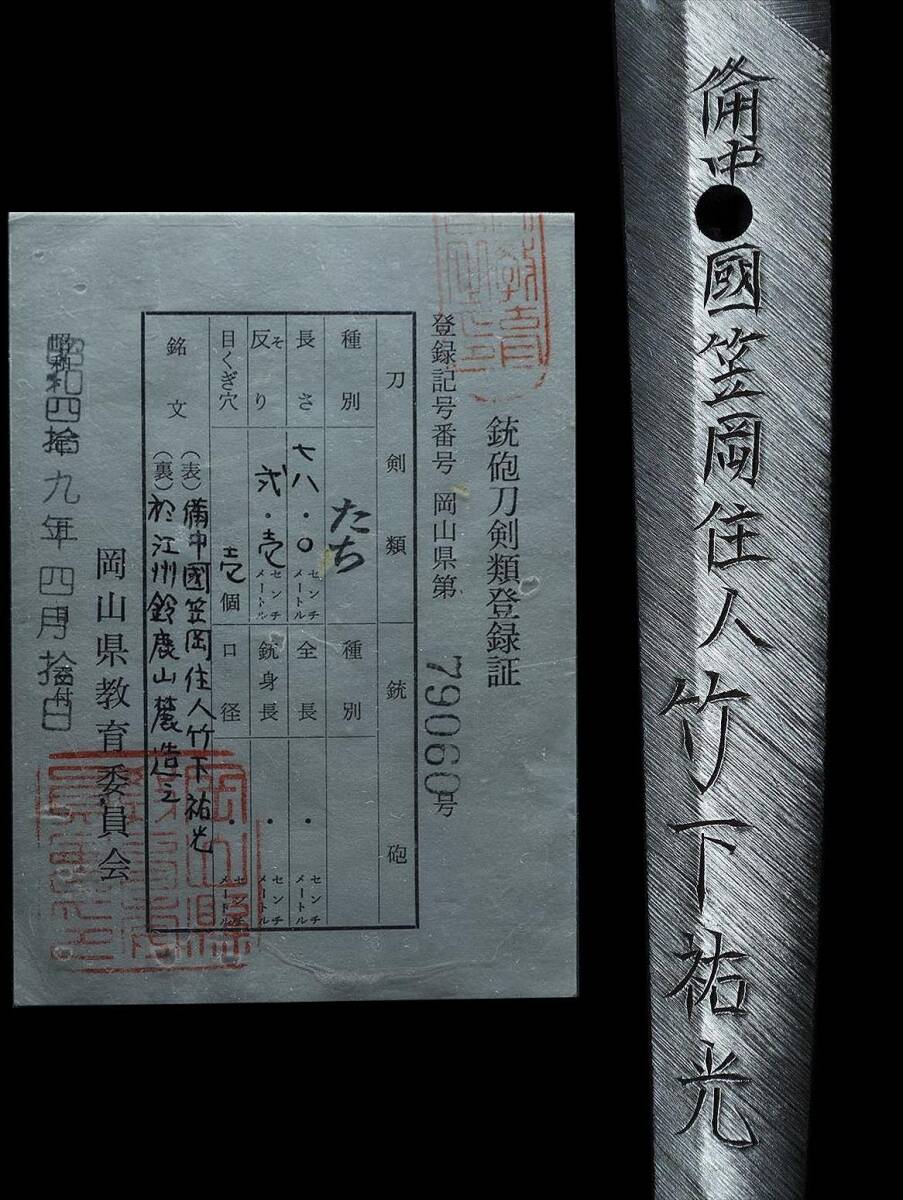 銃砲刀剣類登録証
登録記号番号 岡山県第79060号
刀剣類
銃砲
種別
たち
種別
長さ
七八・〇センチメートル
全長
・センチメートル
反り
そ
弐・壱センチメートル
銃身長
・センチメートル
目くぎ穴
壱個
口径
・センチメートル
銘文
(表)備中國笠岡住人竹下祐光
(裏)於江州鈴鹿山麓造之
岡山県教育委員会
昭和四拾九年四月拾日
交付
備中國笠岡住人竹下祐光